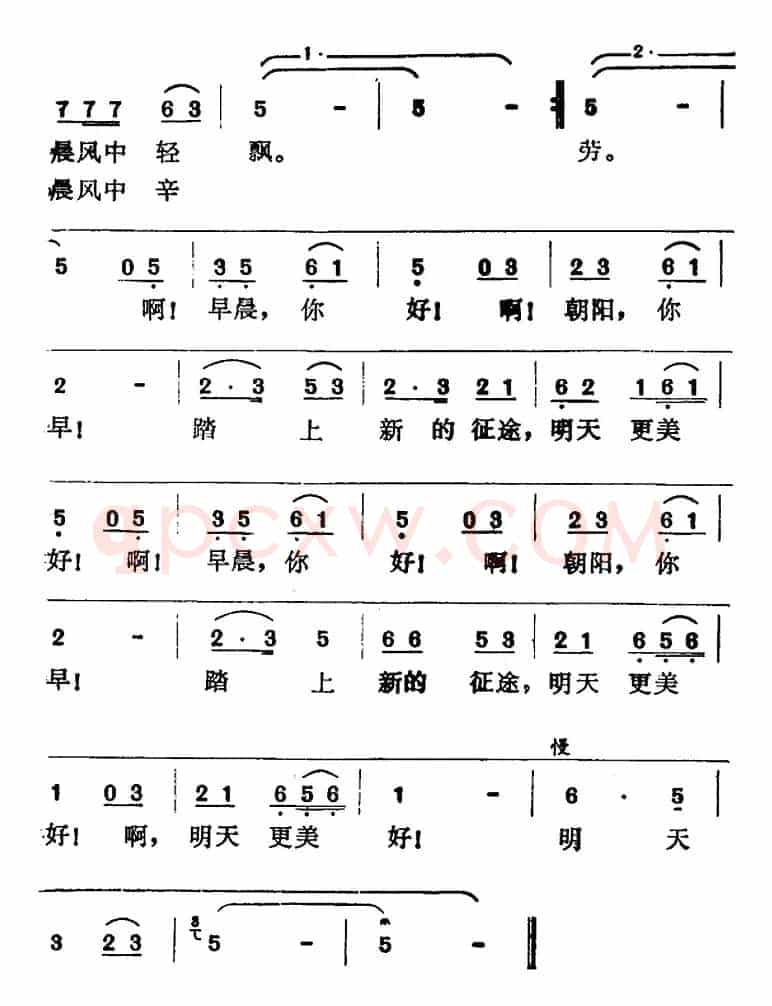 1. 2.
7 7 7 6 3 | 5 - | 5 - :‖ 5 - |
晨风中 轻 飘。 劳。
晨风中 辛
5 0 5 | 3 5 6 1 | 5 0 3 | 2 3 6 1 |
啊! 早晨, 你 好! 啊! 朝阳, 你
2 - | 2 · 3 5 3 | 2 · 3 2 1 | 6 2 1 6 1 |
早! 踏 上 新 的 征途, 明天 更美
5 0 5 | 3 5 6 1 | 5 0 3 | 2 3 6 1 |
好! 啊! 早晨, 你 好! 啊! 朝阳, 你
qpcxw.COM
2 - | 2 · 3 5 | 6 6 5 3 | 2 1 6 5 6 |
早! 踏 上 新的 征途, 明天 更美
慢
1 0 3 | 2 1 6 5 6 | 1 - | 6 · 5 |
好! 啊, 明天 更美 好! 明 天
3 2 3 | 3 5 - | 5 - ‖